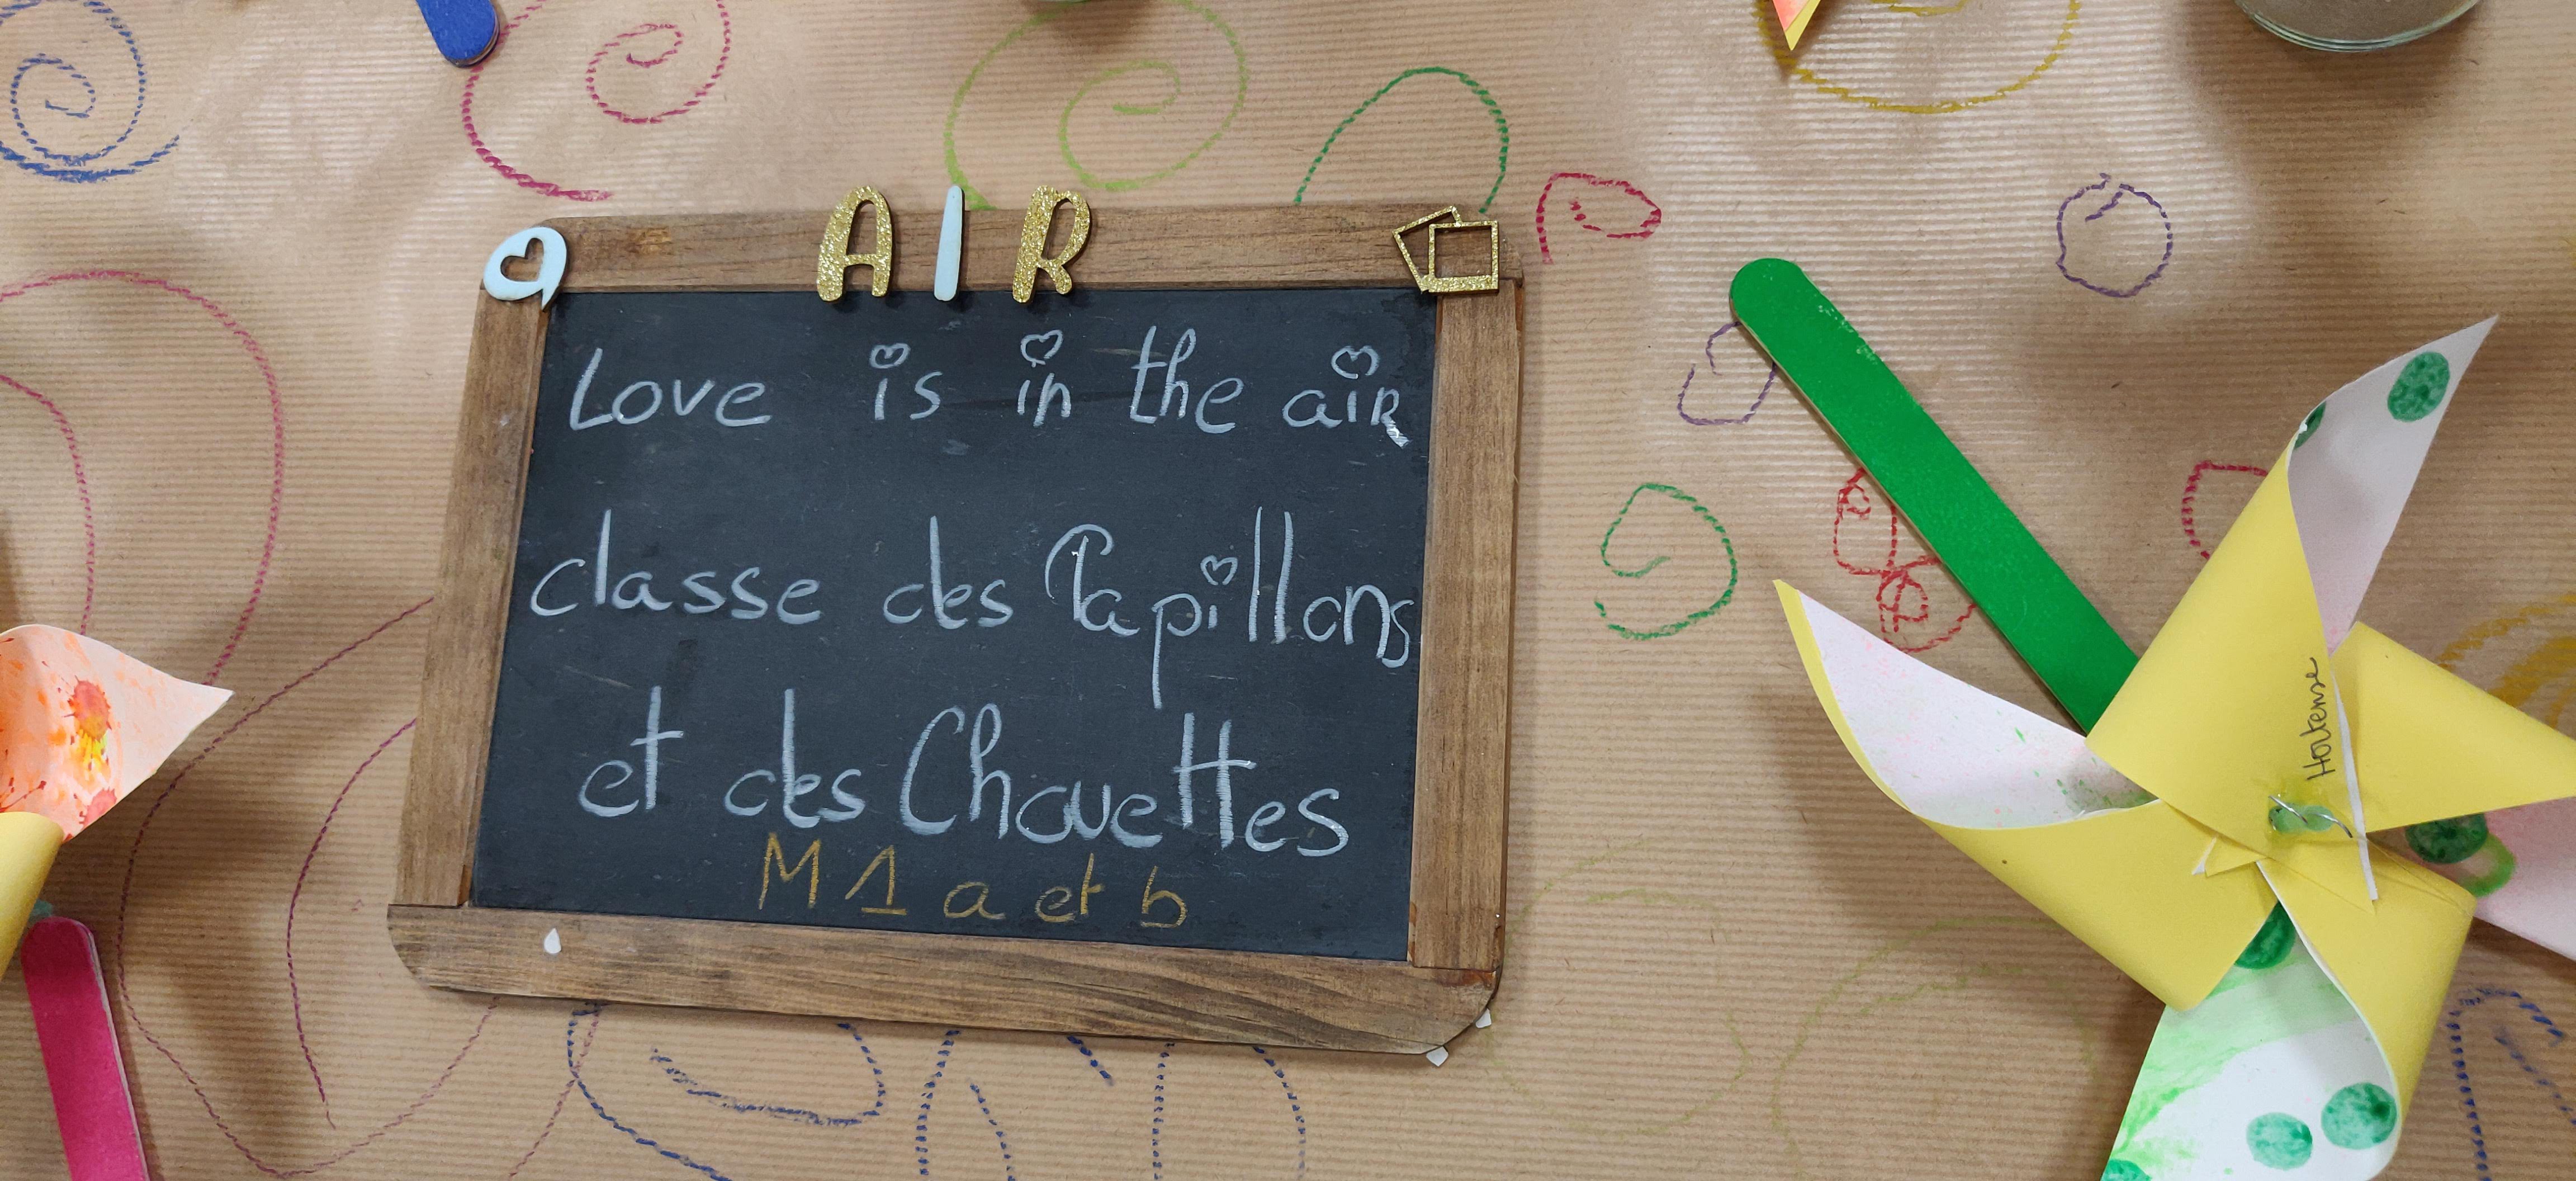 AIR
Love is in the aiR
classe des Papillons
et des Chouettes
M1 a et b
Hortense